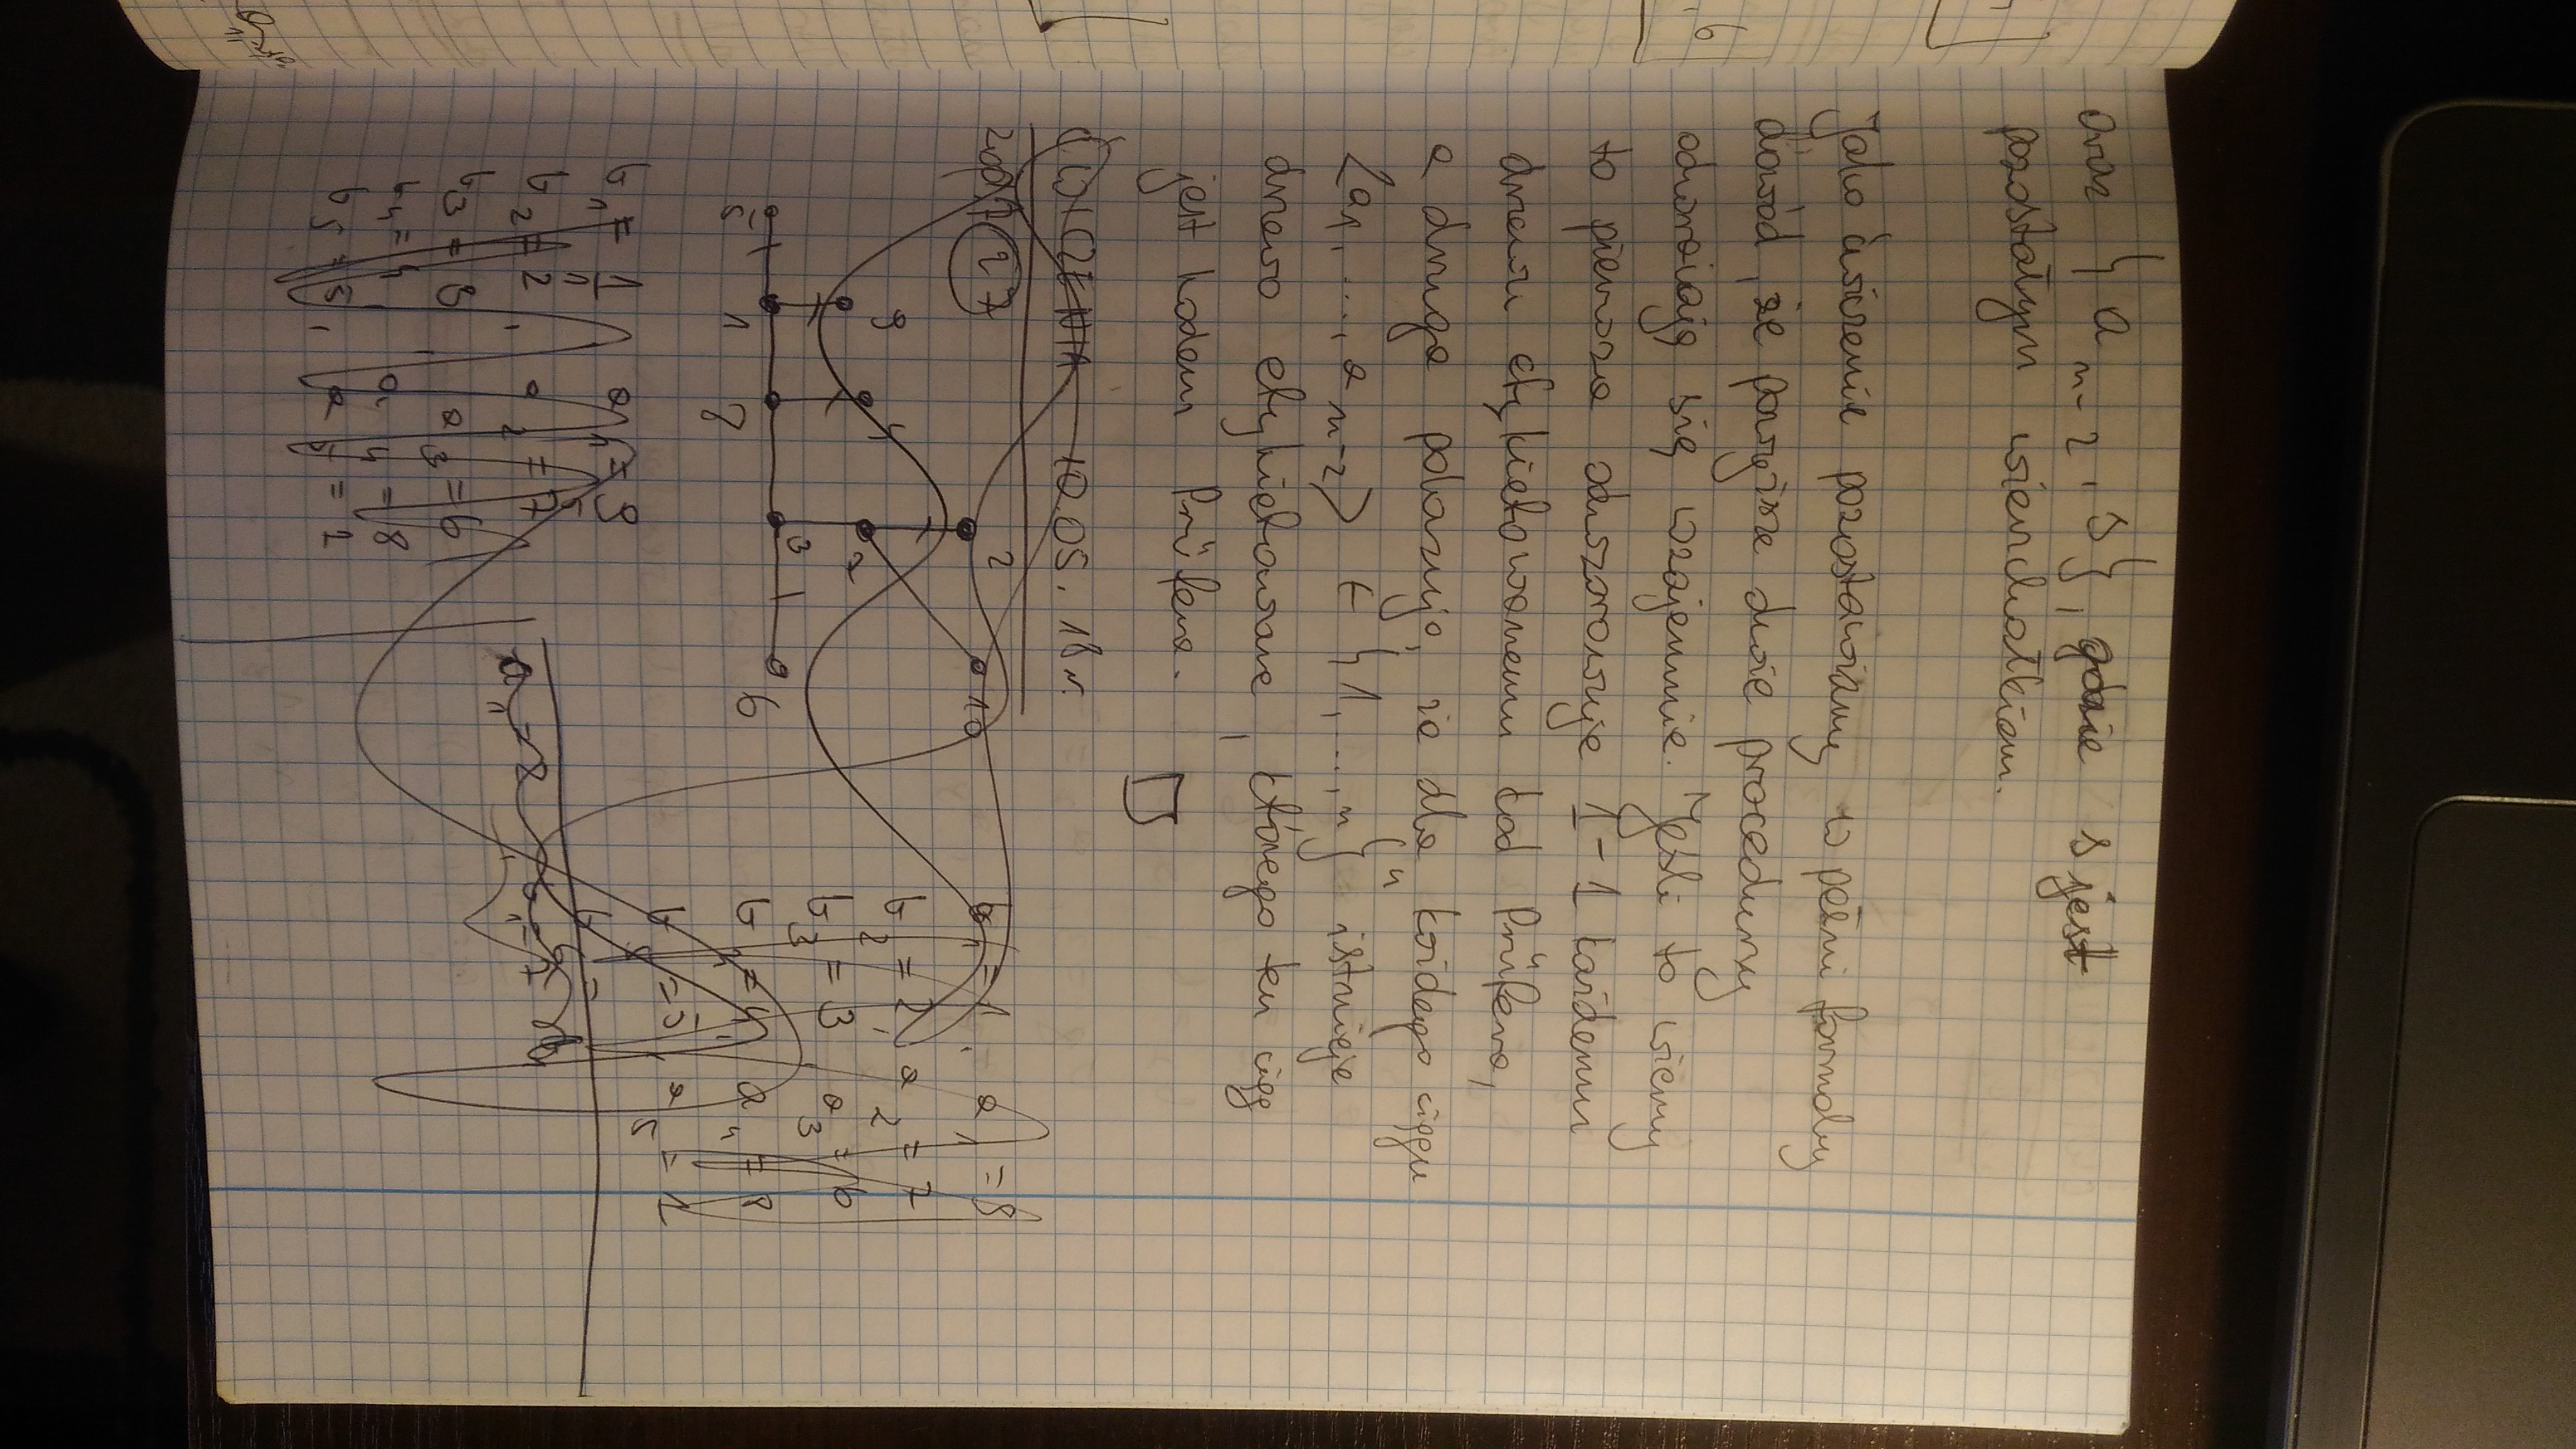 oraz { a n-2 , s }, gdzie s jest
pozostałym wierzchołkiem.
Jako ćwiczenie pozostawiamy w pełni formalny
dowód, że powyższe dwie procedury
odwracają się wzajemnie. Jeśli to wiemy
to pierwsza odwzorowuje 1-1 każdemu
drzewu etykietowanemu kod Prüfera,
a druga pokazuje, że dla każdego ciągu
<a1, ..., a n-2> ∈ {1, ..., n}ⁿ istnieje
drzewo etykietowane, którego ten ciąg
jest kodem Prüfera. □
ĆWICZENIA 10.05.18r.
27
2 10
9 4
7
3
5 1 8 6
b1 = 1, a1 = 8
b2 = 2, a2 = 7
b3 = 3, a3 = 6
b4 = 4, a4 = 8
b5 = 5, a5 = 1
b1 = 1, a1 = 9
b2 = 2, a2 = 7
b3 = 3, a3 = 6
b4 = 4, a4 = 8
b5 = 5, a5 = 1
a1 = 8